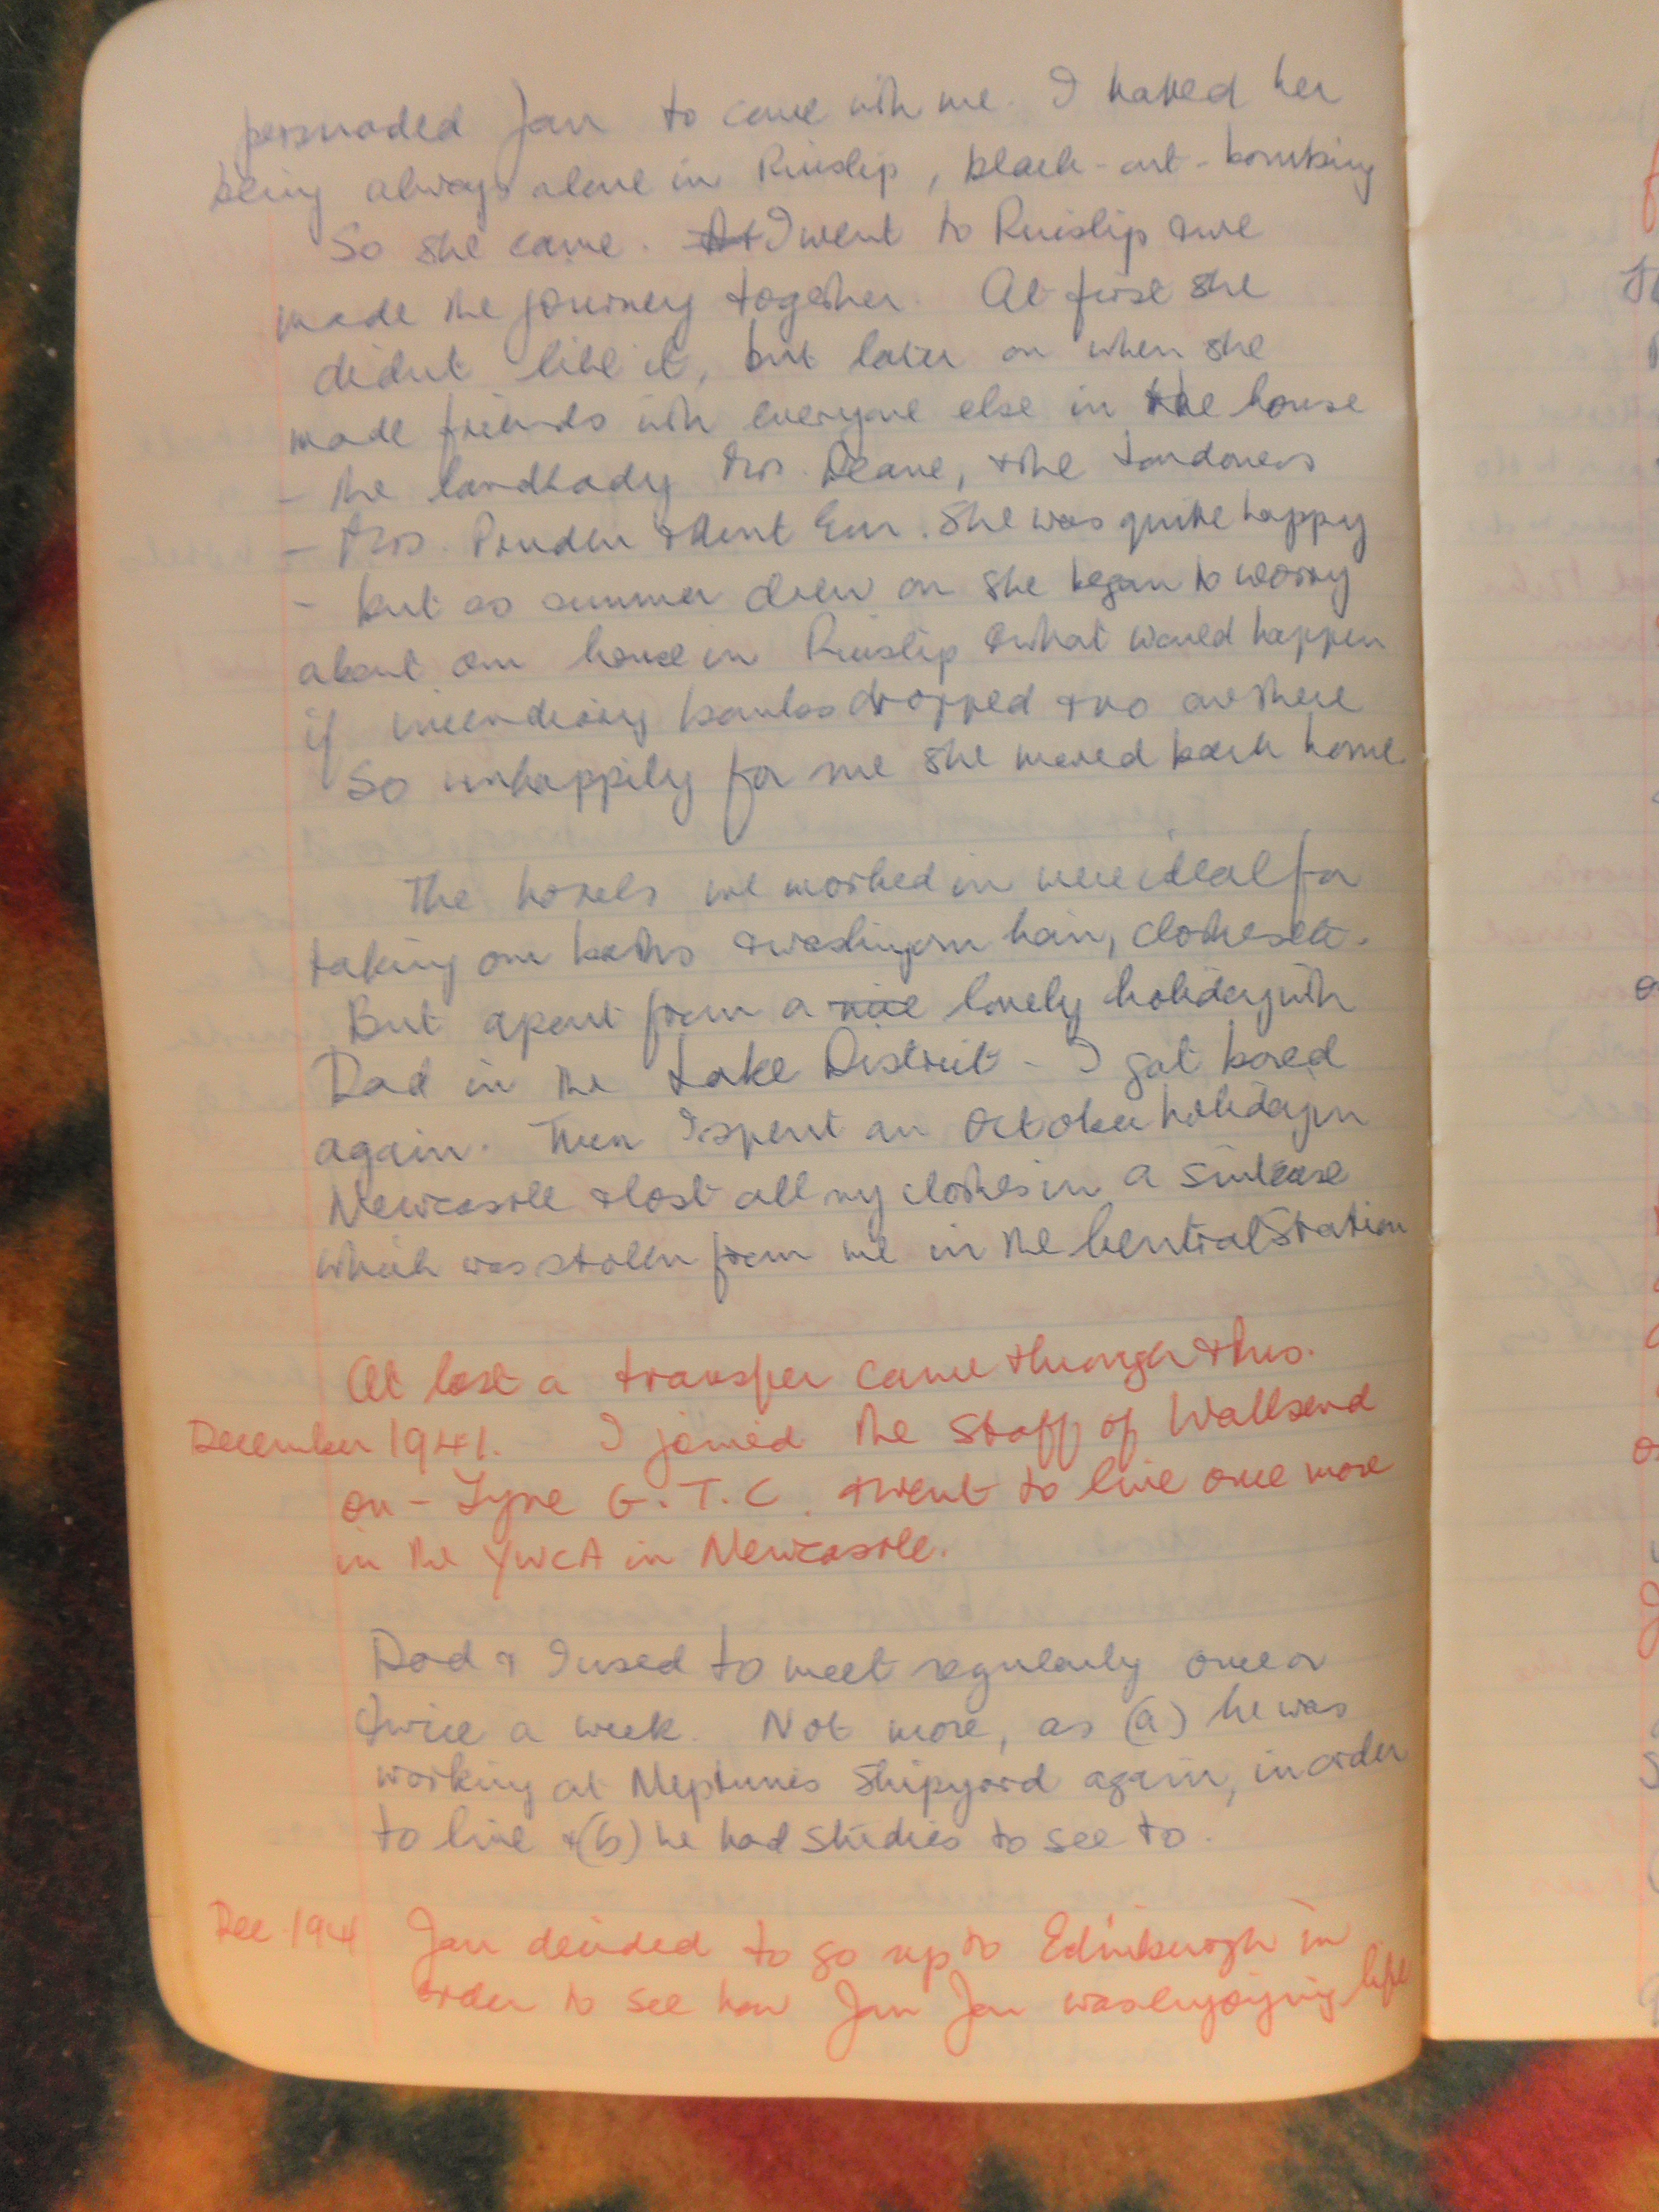 persuaded Jan to come with me. I hated her
being always alone in Ruislip, black-out-bombing
So she came. At I went to Ruislip & we
made the journey together. At first she
didnt like it, but later on when she
made friends with everyone else in the house
- the landlady Mrs. Deane, & the Londoners
- Mrs. & Aunt She was quite happy
- but as summer drew on she began to worry
about our house in Ruislip & what would happen
if incendiary bombs dropped & no one there
So unhappily for me she moved back home
The hotels we worked in were ideal for
taking our baths & washing our hair, clothes etc.
But apart from a nice lovely holiday with
Dad in the Lake District - I got bored
again. Then I spent an October holiday in
Newcastle & lost all my clothes in a suitcase
which was stolen from me in the Central Station
At last a transfer came through & thus.
December 1941. I joined the Staff of Wallsend
on-Tyne G.T.C. & went to live once more
in the YWCA in Newcastle.
Dad & I used to meet regularly once or
twice a week. Not more, as (a) he was
working at Neptunes Shipyard again, in order
to live & (b) he had studies to see to.
Dec. 194 Jan decided to go up to Edinburgh in
order to see how Jan was enjoying life